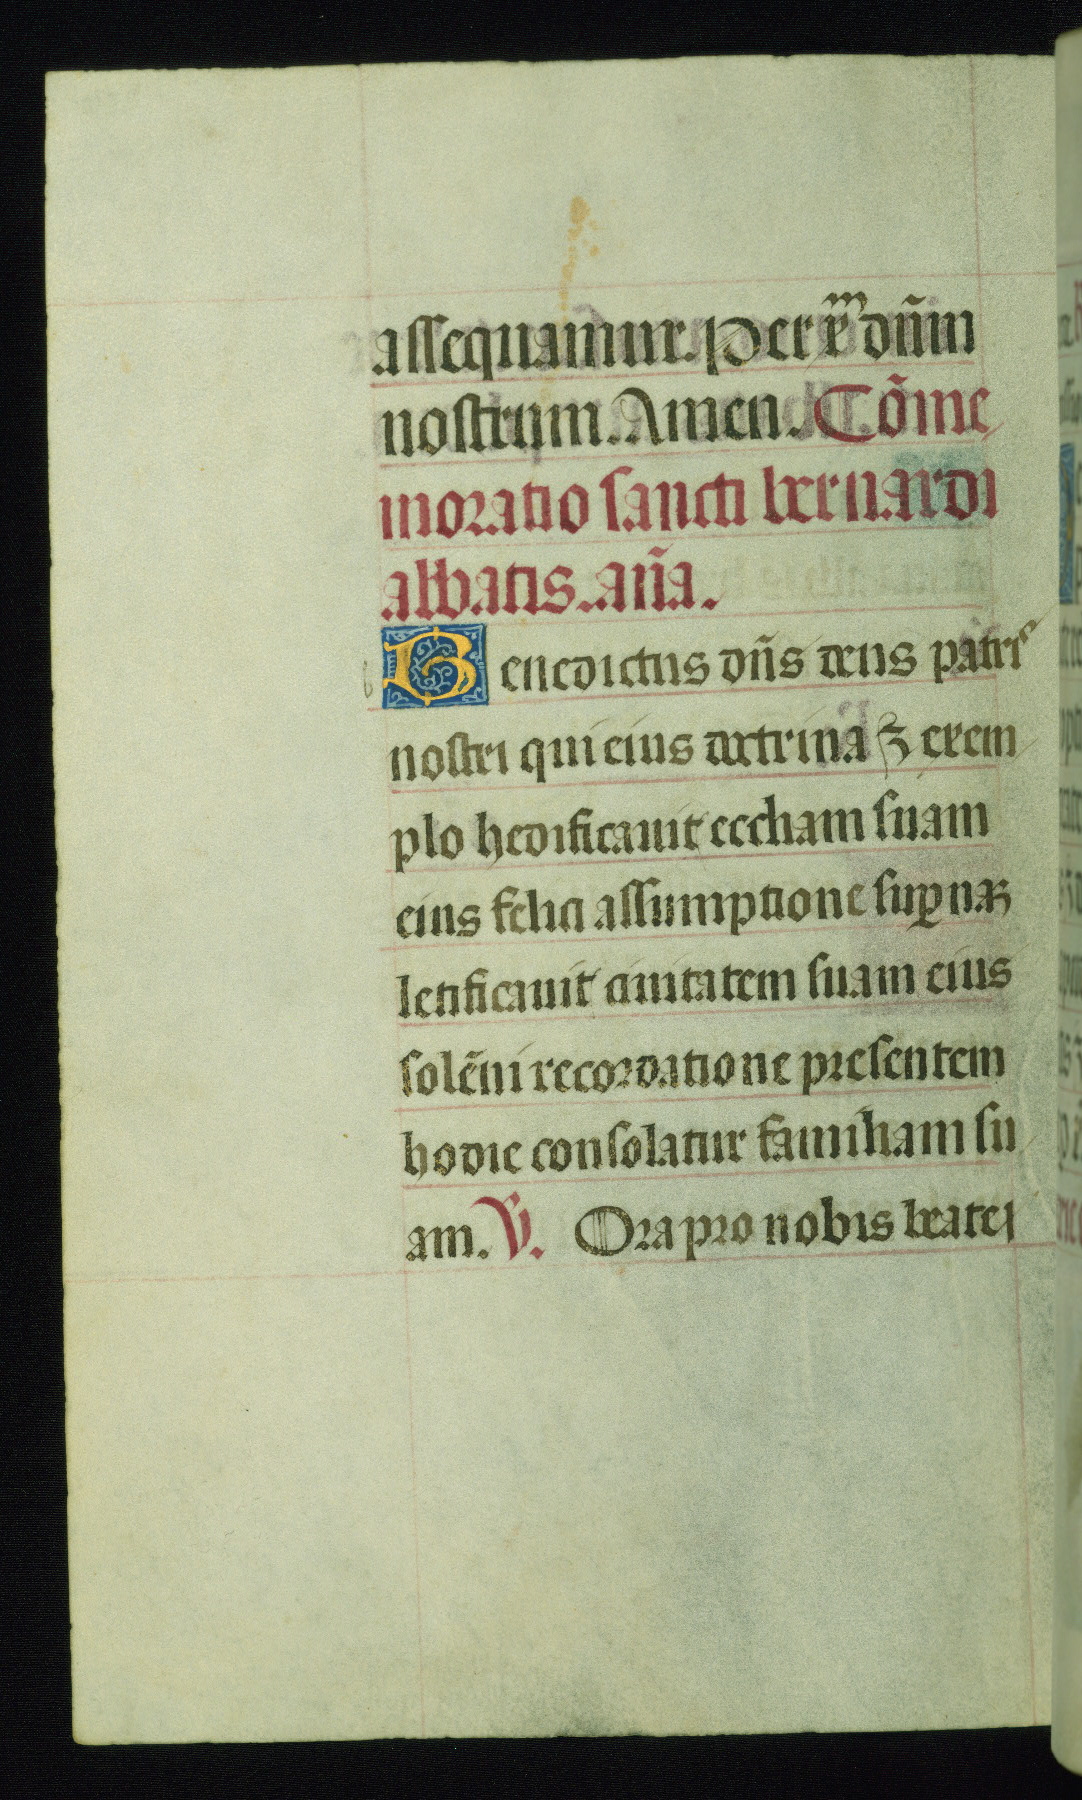 assequamur. Per xp̄m dn̄m
nostrum. Amen. Cōme
moratio sancti bernardi
abbatis. an̄a.
Benedictus dn̄s deus patris
nostri qui eius doctrina ⁊ exem
plo hedificauit eccl̄iam suam
eius felici assumptione suꝑnaꝫ
letificauit ciuitatem suam eius
solēni recordatione presentem
hodie consolatur familiam su
am. V. Ora pro nobis beate